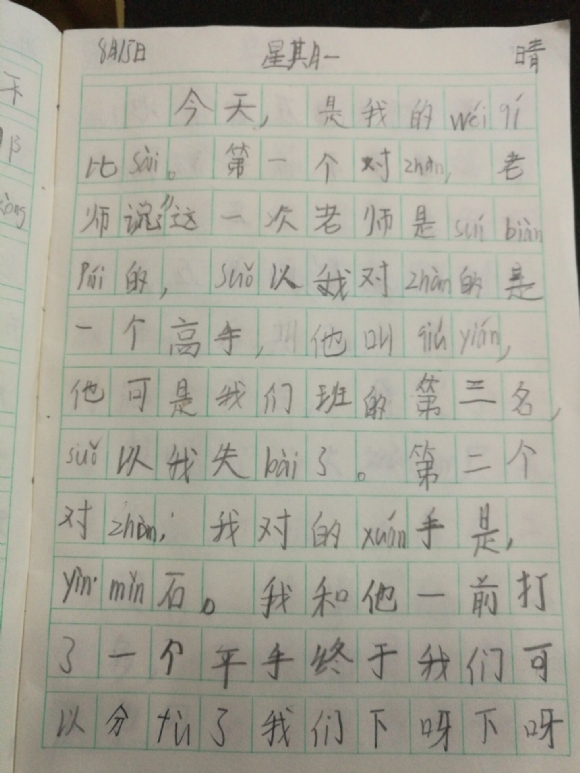 8月15日 星期一 晴
今天，是我的wéi qí
比sài。第一个对zhàn，老
师说“这一次老师是suí biàn
pái的，suǒ以我对zhàn的是
一个高手，他叫qiú yián，
他可是我们班的第三名，
suǒ以我失bài了。第二个
对zhàn，我对的xuǎn手是，
yìn mǐn石。我和他一前打
了一个平手终于我们可
以分tù了我们下呀下呀